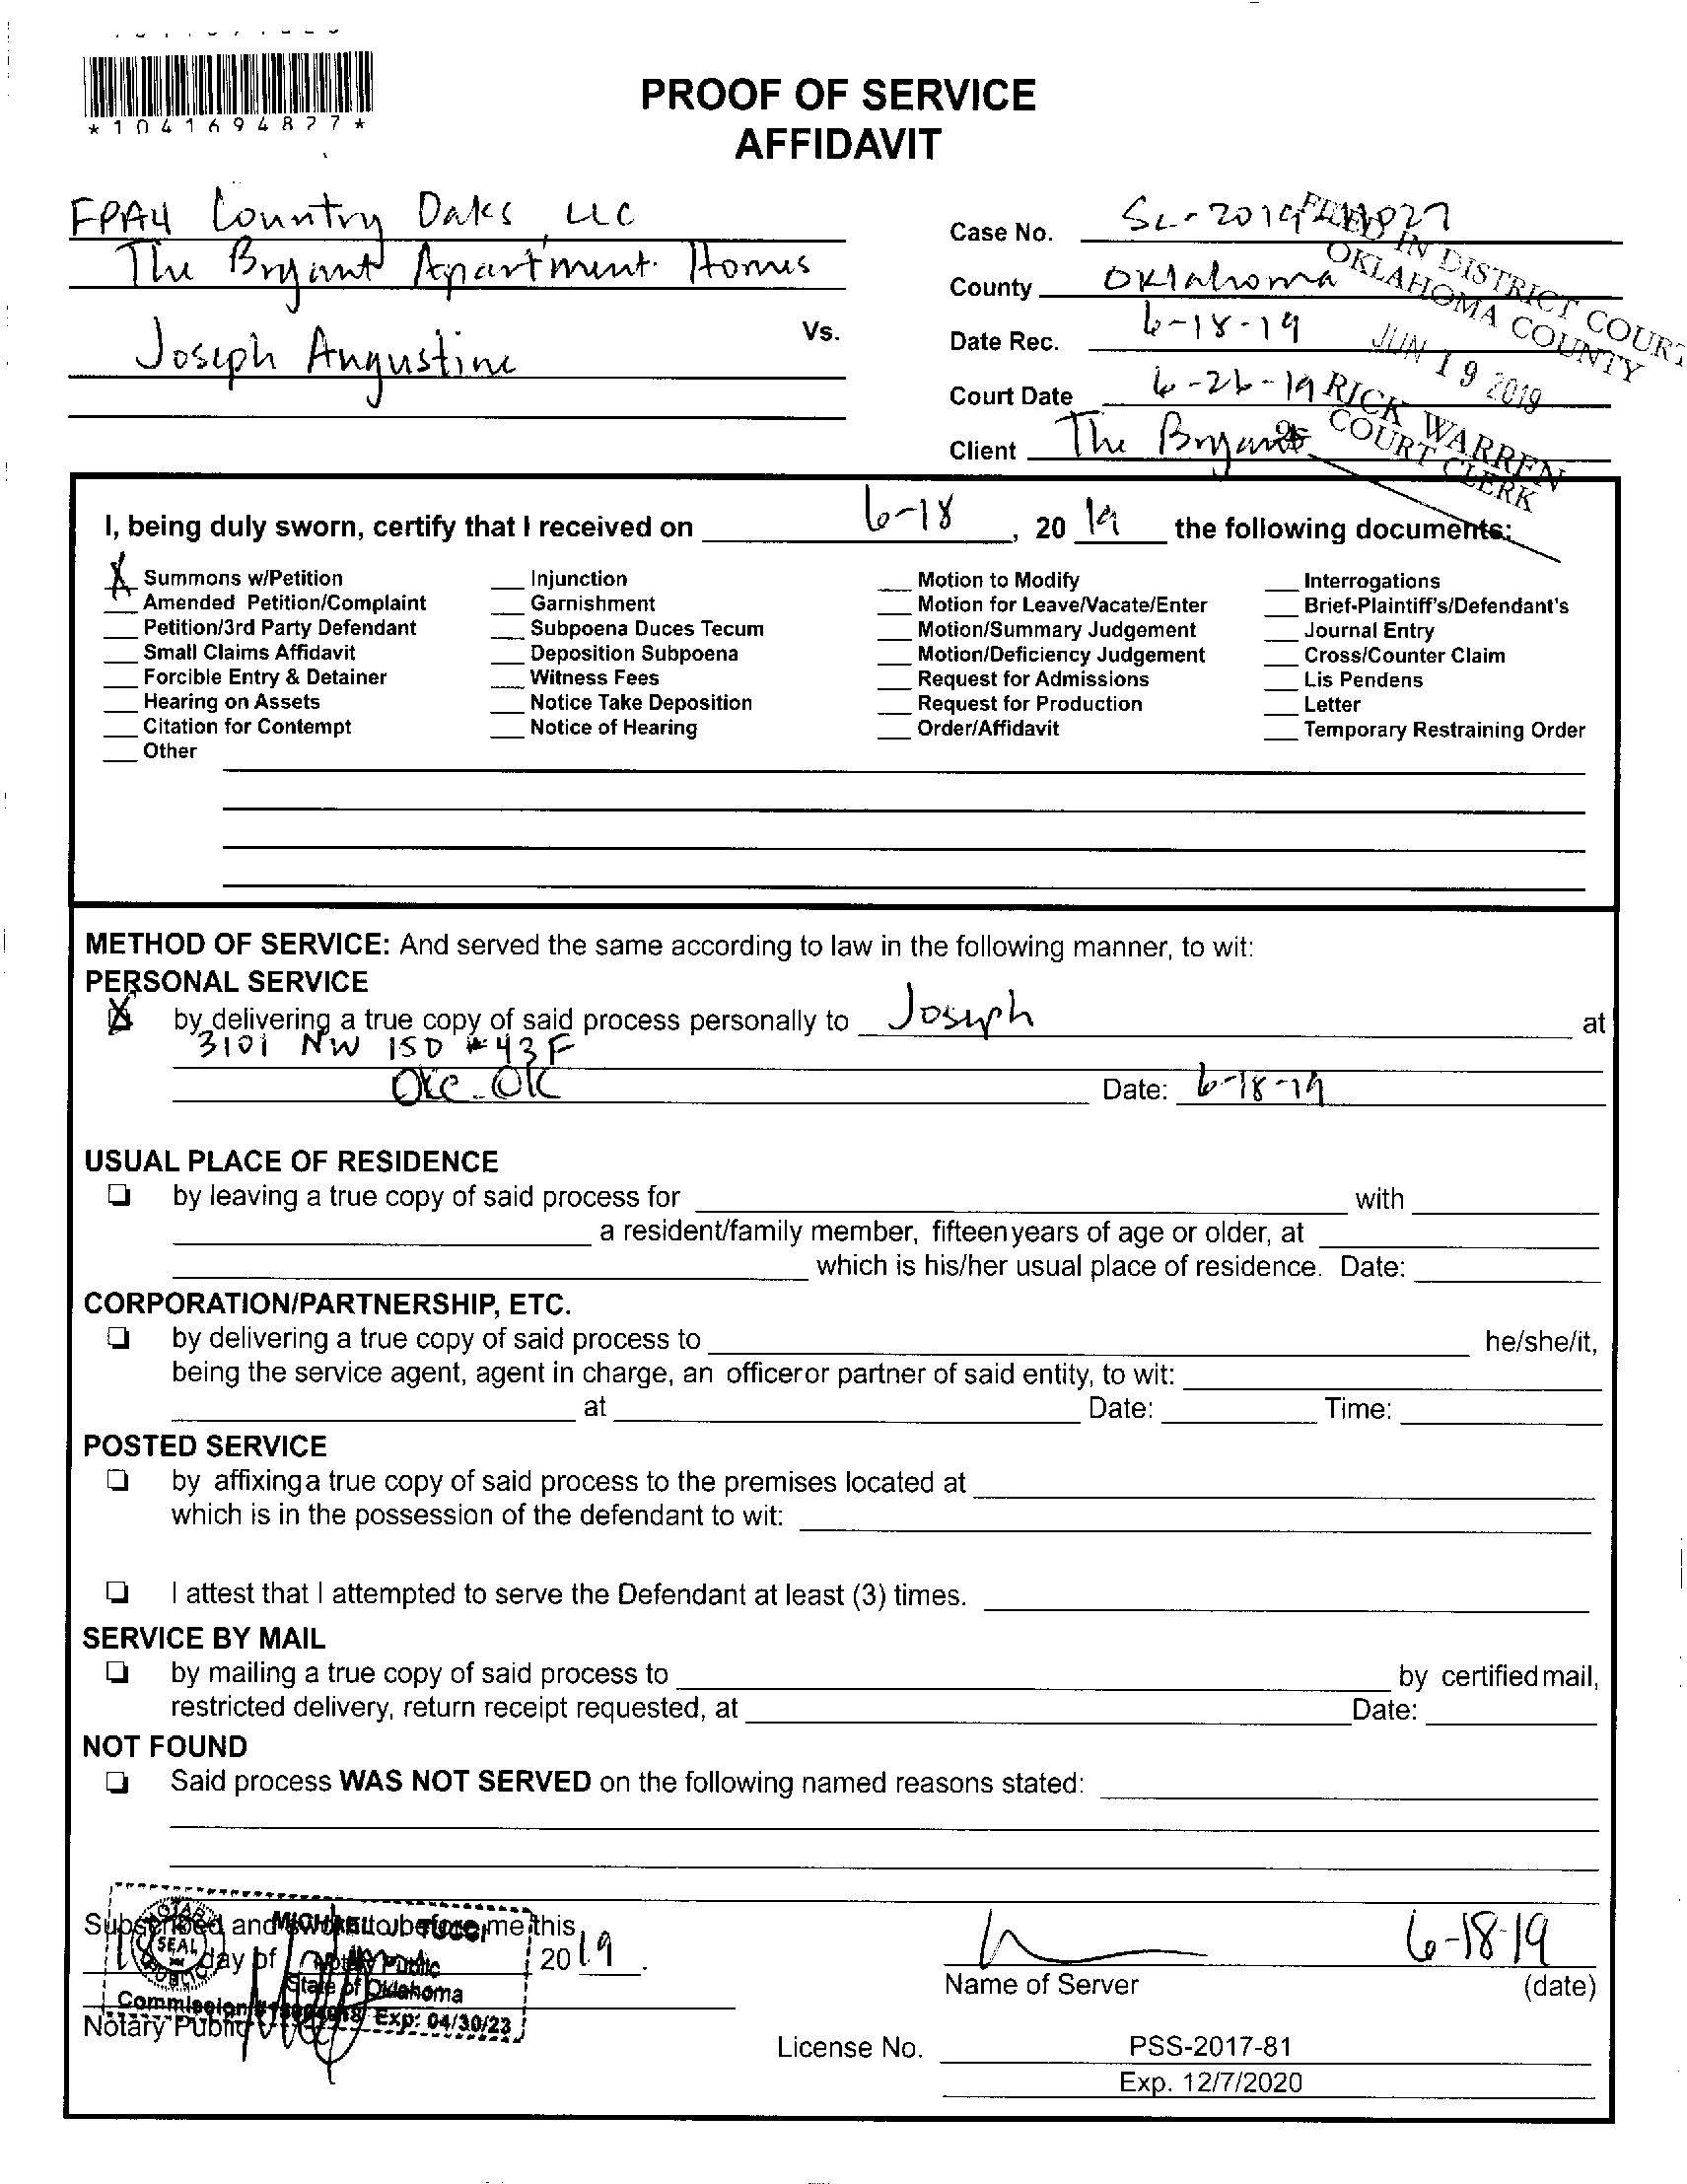 *1041694877*
PROOF OF SERVICE
AFFIDAVIT
FPA4 Country Oaks, LLC
The Bryant Apartment Homes
Vs.
Joseph Augustine
Case No. SC-2019
County Oklahoma
Date Rec. 6-18-19
Court Date 6-26-19
Client The Bryant
FILED IN DISTRICT COURT
OKLAHOMA COUNTY
JUN 19 2019
RICK WARREN
COURT CLERK
I, being duly sworn, certify that I received on 6-18, 20 19 the following documents:
X Summons w/Petition
Amended Petition/Complaint
Petition/3rd Party Defendant
Small Claims Affidavit
Forcible Entry & Detainer
Hearing on Assets
Citation for Contempt
Other
Injunction
Garnishment
Subpoena Duces Tecum
Deposition Subpoena
Witness Fees
Notice Take Deposition
Notice of Hearing
Motion to Modify
Motion for Leave/Vacate/Enter
Motion/Summary Judgement
Motion/Deficiency Judgement
Request for Admissions
Request for Production
Order/Affidavit
Interrogations
Brief-Plaintiff's/Defendant's
Journal Entry
Cross/Counter Claim
Lis Pendens
Letter
Temporary Restraining Order
METHOD OF SERVICE: And served the same according to law in the following manner, to wit:
PERSONAL SERVICE
X by delivering a true copy of said process personally to Joseph at
3101 NW 150 #43F
OKC. OK Date: 6-18-19
USUAL PLACE OF RESIDENCE
by leaving a true copy of said process for with
a resident/family member, fifteen years of age or older, at
which is his/her usual place of residence. Date:
CORPORATION/PARTNERSHIP, ETC.
by delivering a true copy of said process to he/she/it,
being the service agent, agent in charge, an officer or partner of said entity, to wit:
at Date: Time:
POSTED SERVICE
by affixing a true copy of said process to the premises located at
which is in the possession of the defendant to wit:
I attest that I attempted to serve the Defendant at least (3) times.
SERVICE BY MAIL
by mailing a true copy of said process to by certified mail,
restricted delivery, return receipt requested, at Date:
NOT FOUND
Said process WAS NOT SERVED on the following named reasons stated:
Subscribed and sworn to before me this
day of 2019.
Notary Public
NOTARY PUBLIC SEAL
MICHAEL J. TUCCI
Notary Public
State of Oklahoma
Commission Exp: 04/30/23
6-18-19
Name of Server (date)
License No. PSS-2017-81
Exp. 12/7/2020